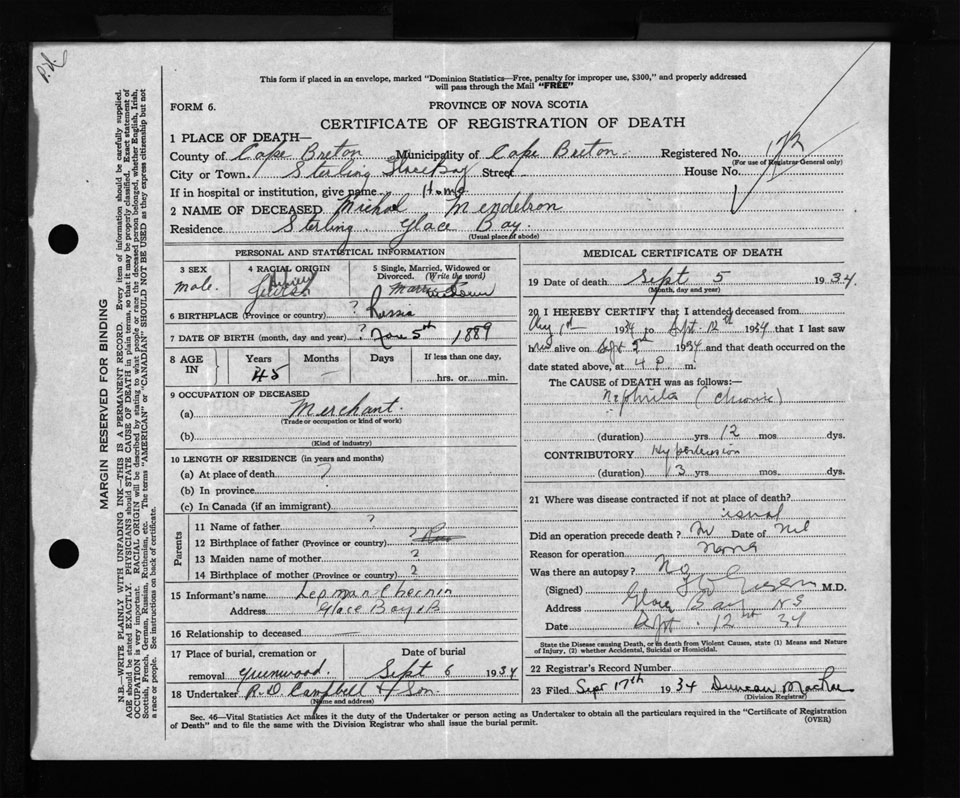 P.X.
This form if placed in an envelope, marked "Dominion Statistics—Free, penalty for improper use, $300," and properly addressed
will pass through the Mail "FREE"
FORM 6.
PROVINCE OF NOVA SCOTIA
CERTIFICATE OF REGISTRATION OF DEATH
1 PLACE OF DEATH—
County of Cape Breton Municipality of Cape Breton Registered No. 172
(For use of Registrar General only)
City or Town. Sterling Glace Bay Street House No.
If in hospital or institution, give name Home
2 NAME OF DECEASED Michal Mendelson
Residence Sterling. Glace Bay.
(Usual place of abode)
PERSONAL AND STATISTICAL INFORMATION
3 SEX
male.
4 RACIAL ORIGIN
Hebrew
Jewish
5 Single, Married, Widowed or
Divorced. (Write the word)
Married
6 BIRTHPLACE (Province or country) ? Russia
7 DATE OF BIRTH (month, day and year) ? 5th 1889
8 AGE IN
Years Months Days If less than one day,
45 — hrs. or min.
9 OCCUPATION OF DECEASED
(a) Merchant.
(Trade or occupation or kind of work)
(b)
(Kind of industry)
10 LENGTH OF RESIDENCE (in years and months)
(a) At place of death ?
(b) In province
(c) In Canada (if an immigrant)
Parents
11 Name of father ?
12 Birthplace of father (Province or country) ?
13 Maiden name of mother ?
14 Birthplace of mother (Province or country) ?
15 Informant's name Lepman Chernin
Address Glace Bay CB
16 Relationship to deceased —
17 Place of burial, cremation or Date of burial
removal Greenwood Sept 6 1934
18 Undertaker R. D. Campbell & Son.
(Name and address)
MEDICAL CERTIFICATE OF DEATH
19 Date of death Sept 5 1934
(Month, day and year)
20 I HEREBY CERTIFY that I attended deceased from
Aug 1st 1934 to Sept. 12th 1934 that I last saw
him alive on Sept 5th 1934 and that death occurred on the
date stated above, at 4 P. m.
The CAUSE of DEATH was as follows:—
Nephritis (Chronic)
(duration) yrs 12 mos. dys.
CONTRIBUTORY Hypertension
(duration) 3 yrs mos. dys.
21 Where was disease contracted if not at place of death?
usual
Did an operation precede death? No Date of Nil
Reason for operation None
Was there an autopsy? No
(Signed) M.D.
Address Glace Bay NS
Date Sept. 12th 34
State the Disease causing Death, or in death from Violent Causes, state (1) Means and Nature
of Injury, (2) whether Accidental, Suicidal or Homicidal.
22 Registrar's Record Number
23 Filed Sept 17th 1934 Duncan MacRae
(Division Registrar)
Sec. 46—Vital Statistics Act makes it the duty of the Undertaker or person acting as Undertaker to obtain all the particulars required in the "Certificate of Registration
of Death" and to file the same with the Division Registrar who shall issue the burial permit.
(OVER)
MARGIN RESERVED FOR BINDING
N.B.—WRITE PLAINLY WITH UNFADING INK—THIS IS A PERMANENT RECORD. Every item of information should be carefully supplied.
AGE should be stated EXACTLY. PHYSICIANS should STATE CAUSE OF DEATH in plain terms, so that it may be properly classified. Exact statement of
OCCUPATION is very important. RACIAL ORIGIN will be described by stating to what people or race the deceased person belonged, whether English, Irish,
Scottish, French, German, Russian, Ruthenian, etc. The terms "AMERICAN" or "CANADIAN" SHOULD NOT BE USED as they express citizenship but not
a race or people. See instructions on back of certificate.